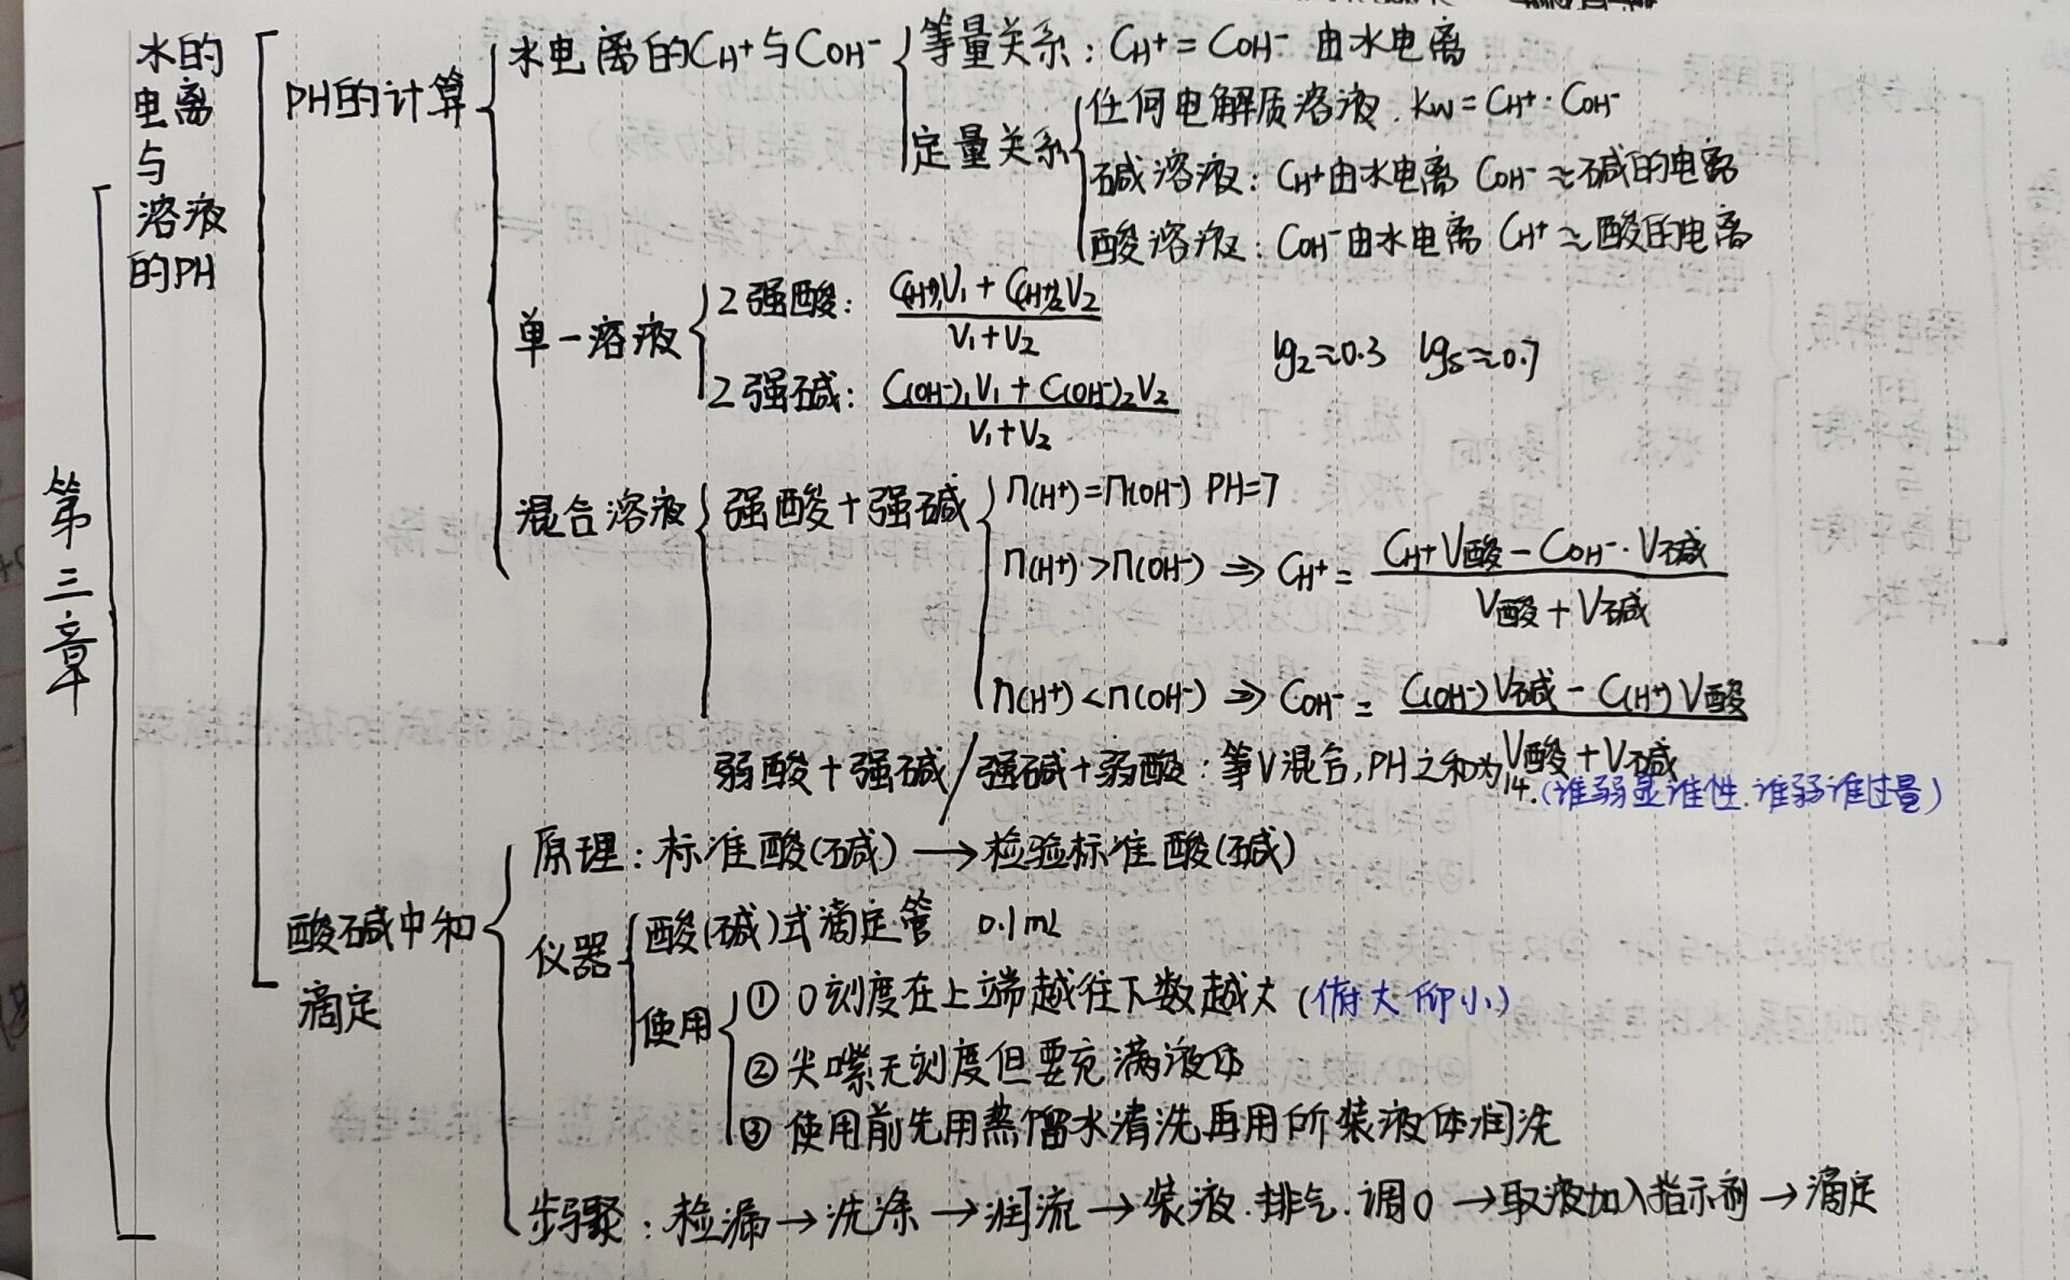 第三章
水的
电离
与
溶液
的PH
PH的计算
水电离的CH⁺与COH⁻
等量关系：CH⁺=COH⁻ 由水电离
定量关系
任何电解质溶液. Kw=CH⁺·COH⁻
碱溶液：CH⁺由水电离 COH⁻≈碱的电离
酸溶液：COH⁻由水电离 CH⁺≈酸的电离
单一溶液
2强酸： (C(H⁺)₁V₁+C(H⁺)₂V₂)/(V₁+V₂)
2强碱： (C(OH⁻)₁V₁+C(OH⁻)₂V₂)/(V₁+V₂)
lg2≈0.3 lg5≈0.7
混合溶液
强酸+强碱
n(H⁺)=n(OH⁻) PH=7
n(H⁺)>n(OH⁻) ⇒ CH⁺= (CH⁺V酸-COH⁻·V碱)/(V酸+V碱)
n(H⁺)<n(OH⁻) ⇒ COH⁻= (C(OH⁻)V碱-C(H⁺)V酸)/(V酸+V碱)
弱酸+强碱/强碱+弱酸：等V混合,PH之和为14.(谁弱显谁性.谁弱谁过量)
酸碱中和
滴定
原理：标准酸(碱)→检验标准酸(碱)
仪器
酸(碱)式滴定管 0.1mL
使用
① 0刻度在上端越往下数越大(俯大仰小)
② 尖嘴无刻度但要充满液体
③ 使用前先用蒸馏水清洗再用所装液体润洗
步骤：检漏→洗涤→润流→装液.排气.调0→取液加入指示剂→滴定